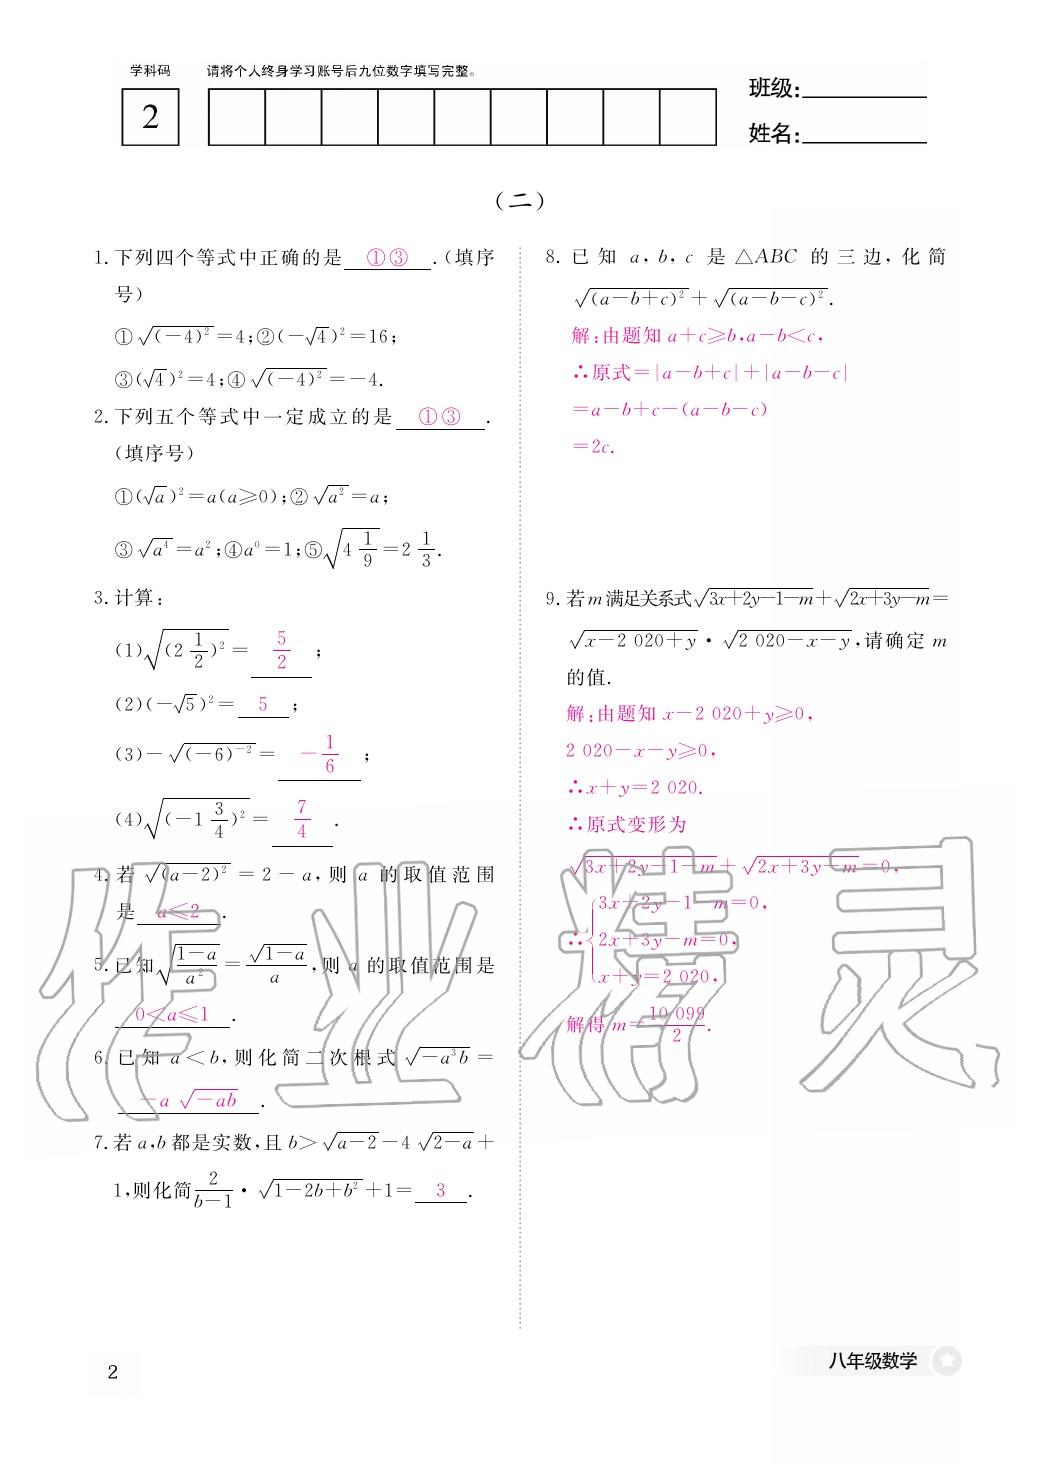 学科码 请将个人终身学习账号后九位数字填写完整。
2
班级:
姓名:
(二)
1. 下列四个等式中正确的是 ①③ .(填序
号)
①√(-4)²=4;②(-√4)²=16;
③(√4)²=4;④√(-4)²=-4.
2. 下列五个等式中一定成立的是 ①③ .
(填序号)
①(√a)²=a(a≥0);②√a²=a;
③√a⁴=a²;④a⁰=1;⑤√(4 1/9)=2 1/3.
3. 计算:
(1)√(2 1/2)²= 5/2 ;
(2)(-√5)²= 5 ;
(3)-√(-6)⁻²= -1/6 ;
(4)√(-1 3/4)²= 7/4 .
4. 若 √(a-2)² =2-a,则 a 的取值范围
是 a≤2 .
5. 已知√((1-a)/a²)=√(1-a)/a,则 a 的取值范围是
0<a≤1 .
6. 已知 a<b,则化简二次根式 √(-a³b) =
-a √(-ab) .
7. 若 a,b 都是实数,且 b>√(a-2)-4√(2-a)+
1,则化简2/(b-1)·√(1-2b+b²)+1= 3 .
8. 已知 a,b,c 是 △ABC 的三边,化简
√(a-b+c)²+√(a-b-c)².
解:由题知 a+c≥b,a-b<c,
∴原式=|a-b+c|+|a-b-c|
=a-b+c-(a-b-c)
=2c.
9. 若m满足关系式√(3x+2y-1-m)+√(2x+3y-m)=
√(x-2 020+y)·√(2 020-x-y),请确定 m
的值.
解:由题知 x-2 020+y≥0,
2 020-x-y≥0,
∴x+y=2 020.
∴原式变形为
√(3x+2y-1-m)+√(2x+3y-m)=0,
∴{3x+2y-1-m=0,
2x+3y-m=0,
x+y=2 020,
解得 m=10 099/2.
作业精灵
2
八年级数学